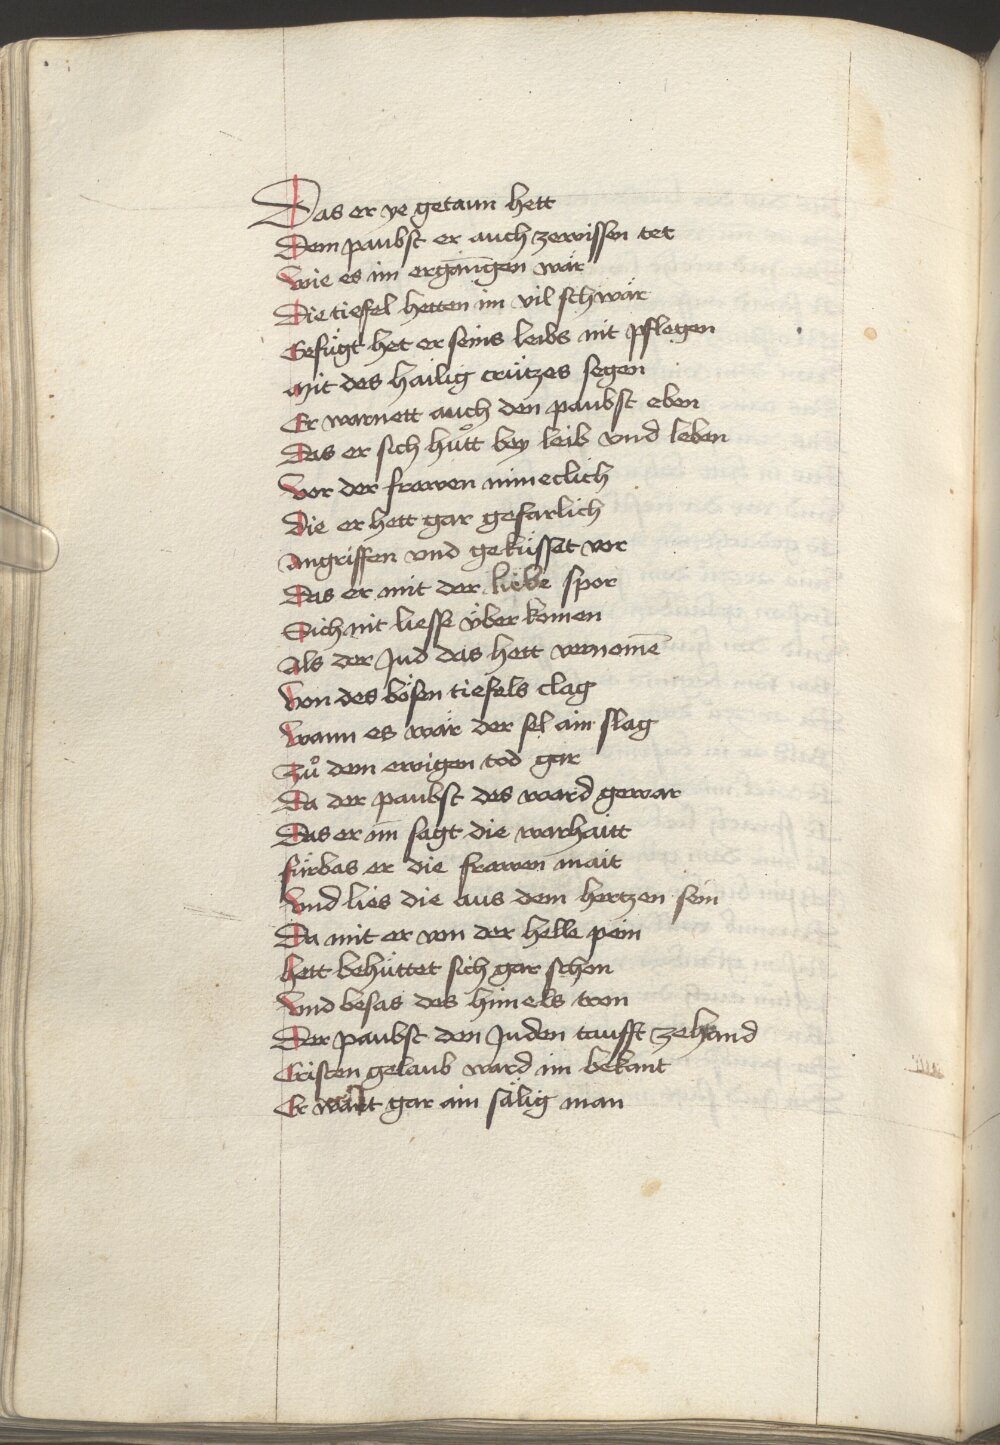 Das er ye getaun hett
Dem paubst er auch zewissen tet
Wie es im ergangen wär
Die tiefel hetten im vil schwär
Gefügt het er seins leibs nit pflegen
Mit des hailig crützes segen
Er warnett auch den paubst eben
Das er sich huͦtt bey leib vnd leben
Vor der frawen mineclich
Die er hett gar gefarlich
Angriffen vnd geküsset vor
Das er mit der liebe spor
Sich nit liesse überkomen
Als der Jud das hett vernomē
Von des bösen tiefels clag
Wann es wär der sel ain slag
Zuͦ dem ewigen tod gar
Da der paubst des ward gewar
Das er im̄ sagt die warhaitt
Fürbas er die frawen mait
Vnd lies die aus dem hertzen sein
Da mit er von der helle pein
Hett behüttet sich gar schon
Vnd besas des himels tron
Der paubst den Juden taufft zehand
Cristen gelaub ward im bekant
Er gar ain sälig man